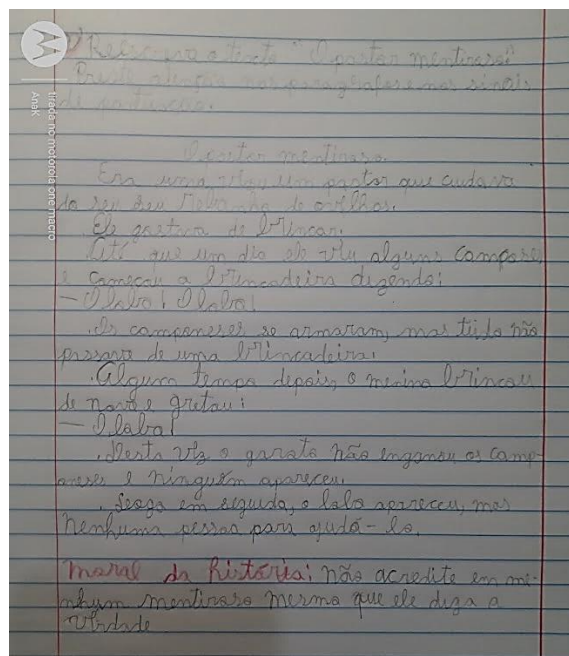 Tirada no motorola one macro
AnaK
1º Reescreva o texto "O pastor mentiroso"
Preste atenção nos paragrafos e nos sinais
de pontuação.
O pastor mentiroso.
Era uma vez um pastor que cudava
do seu seu rebanho de ovelhas.
Ele gostava de brincar.
Até que um dia ele viu alguns campones
e começou a brincadeira dizendo:
— O lobo! O lobo!
Os camponeses se armaram, mas tudo não
passava de uma brincadeira.
Algum tempo depois, o menino brincou
de novo e gretou:
— O lobo!
Desta vez o garoto não enganou os camp-
oneses e ninguém apareceu.
Logo em seguida, o lobo apareceu, mas
nenhuma pessoa para ajudá-lo.
Moral da história: não acredite em ne-
nhum mentiroso mesmo que ele diga a
verdade